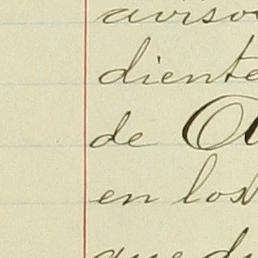 aviso
diente
de
en los
que du